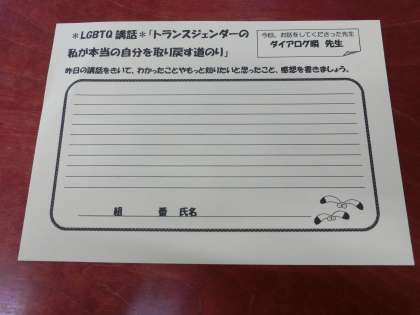 ＊LGBTQ 講話＊「トランスジェンダーの
私が本当の自分を取り戻す道のり」
今回、お話をしてくださった先生
ダイアログ瞬 先生
昨日の講話をきいて、わかったことやもっと知りたいと思ったこと、感想を書きましょう。
組 番 氏名